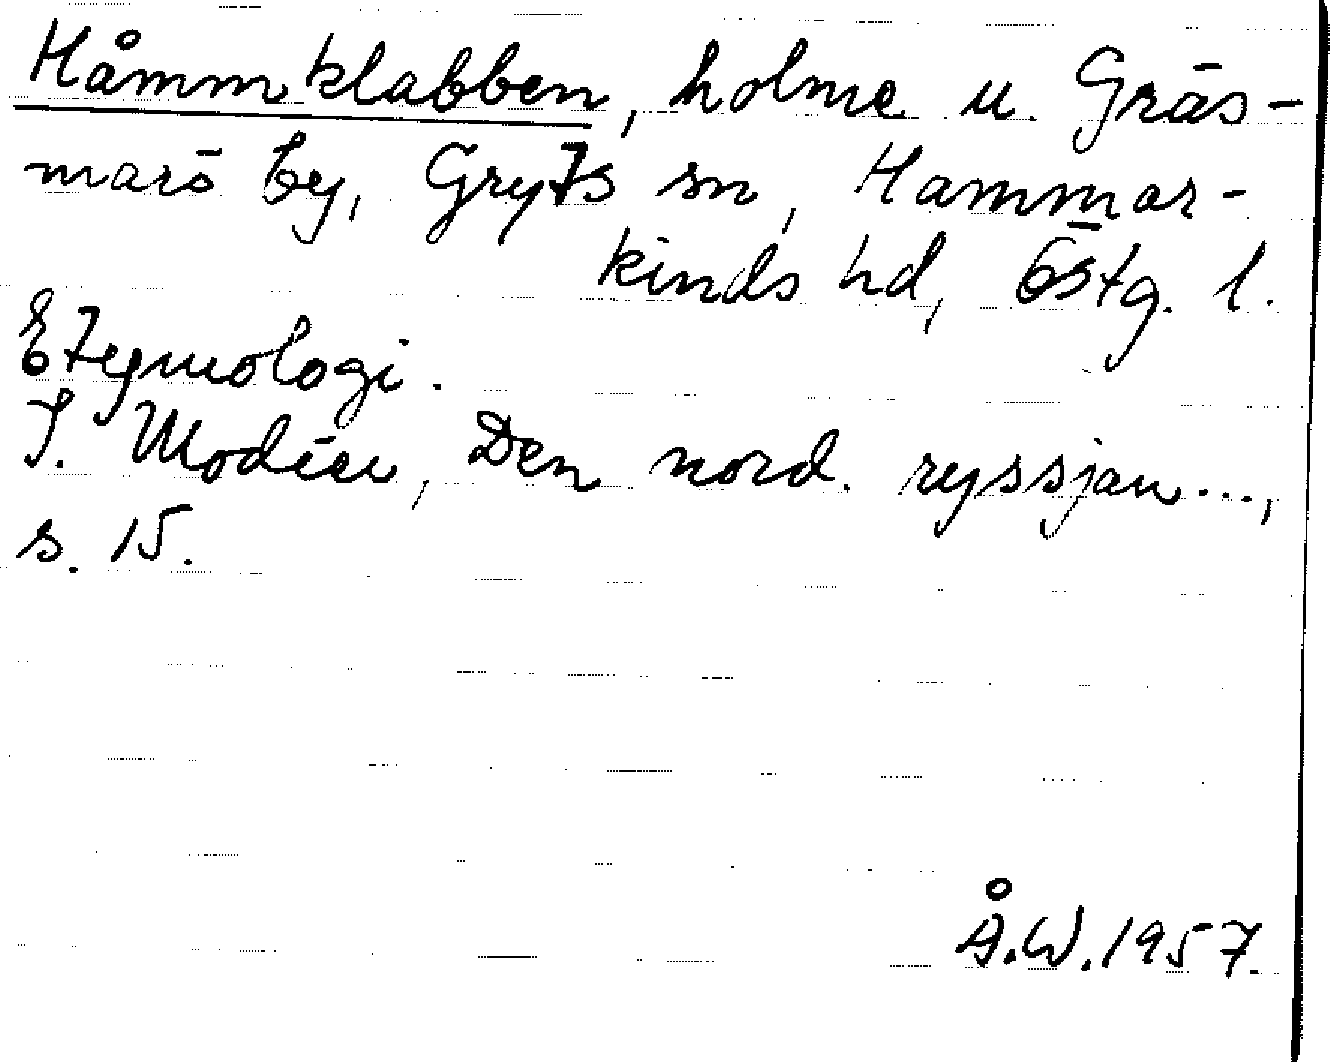 Håmmklabben, holme u. Gräs-
marö by, Gryts sn, Hammar-
kinds hd, Östg. l.
Etymologi.
I. Modéer, Den nord. ryssjan...,
s. 15.
Å.W. 1957.